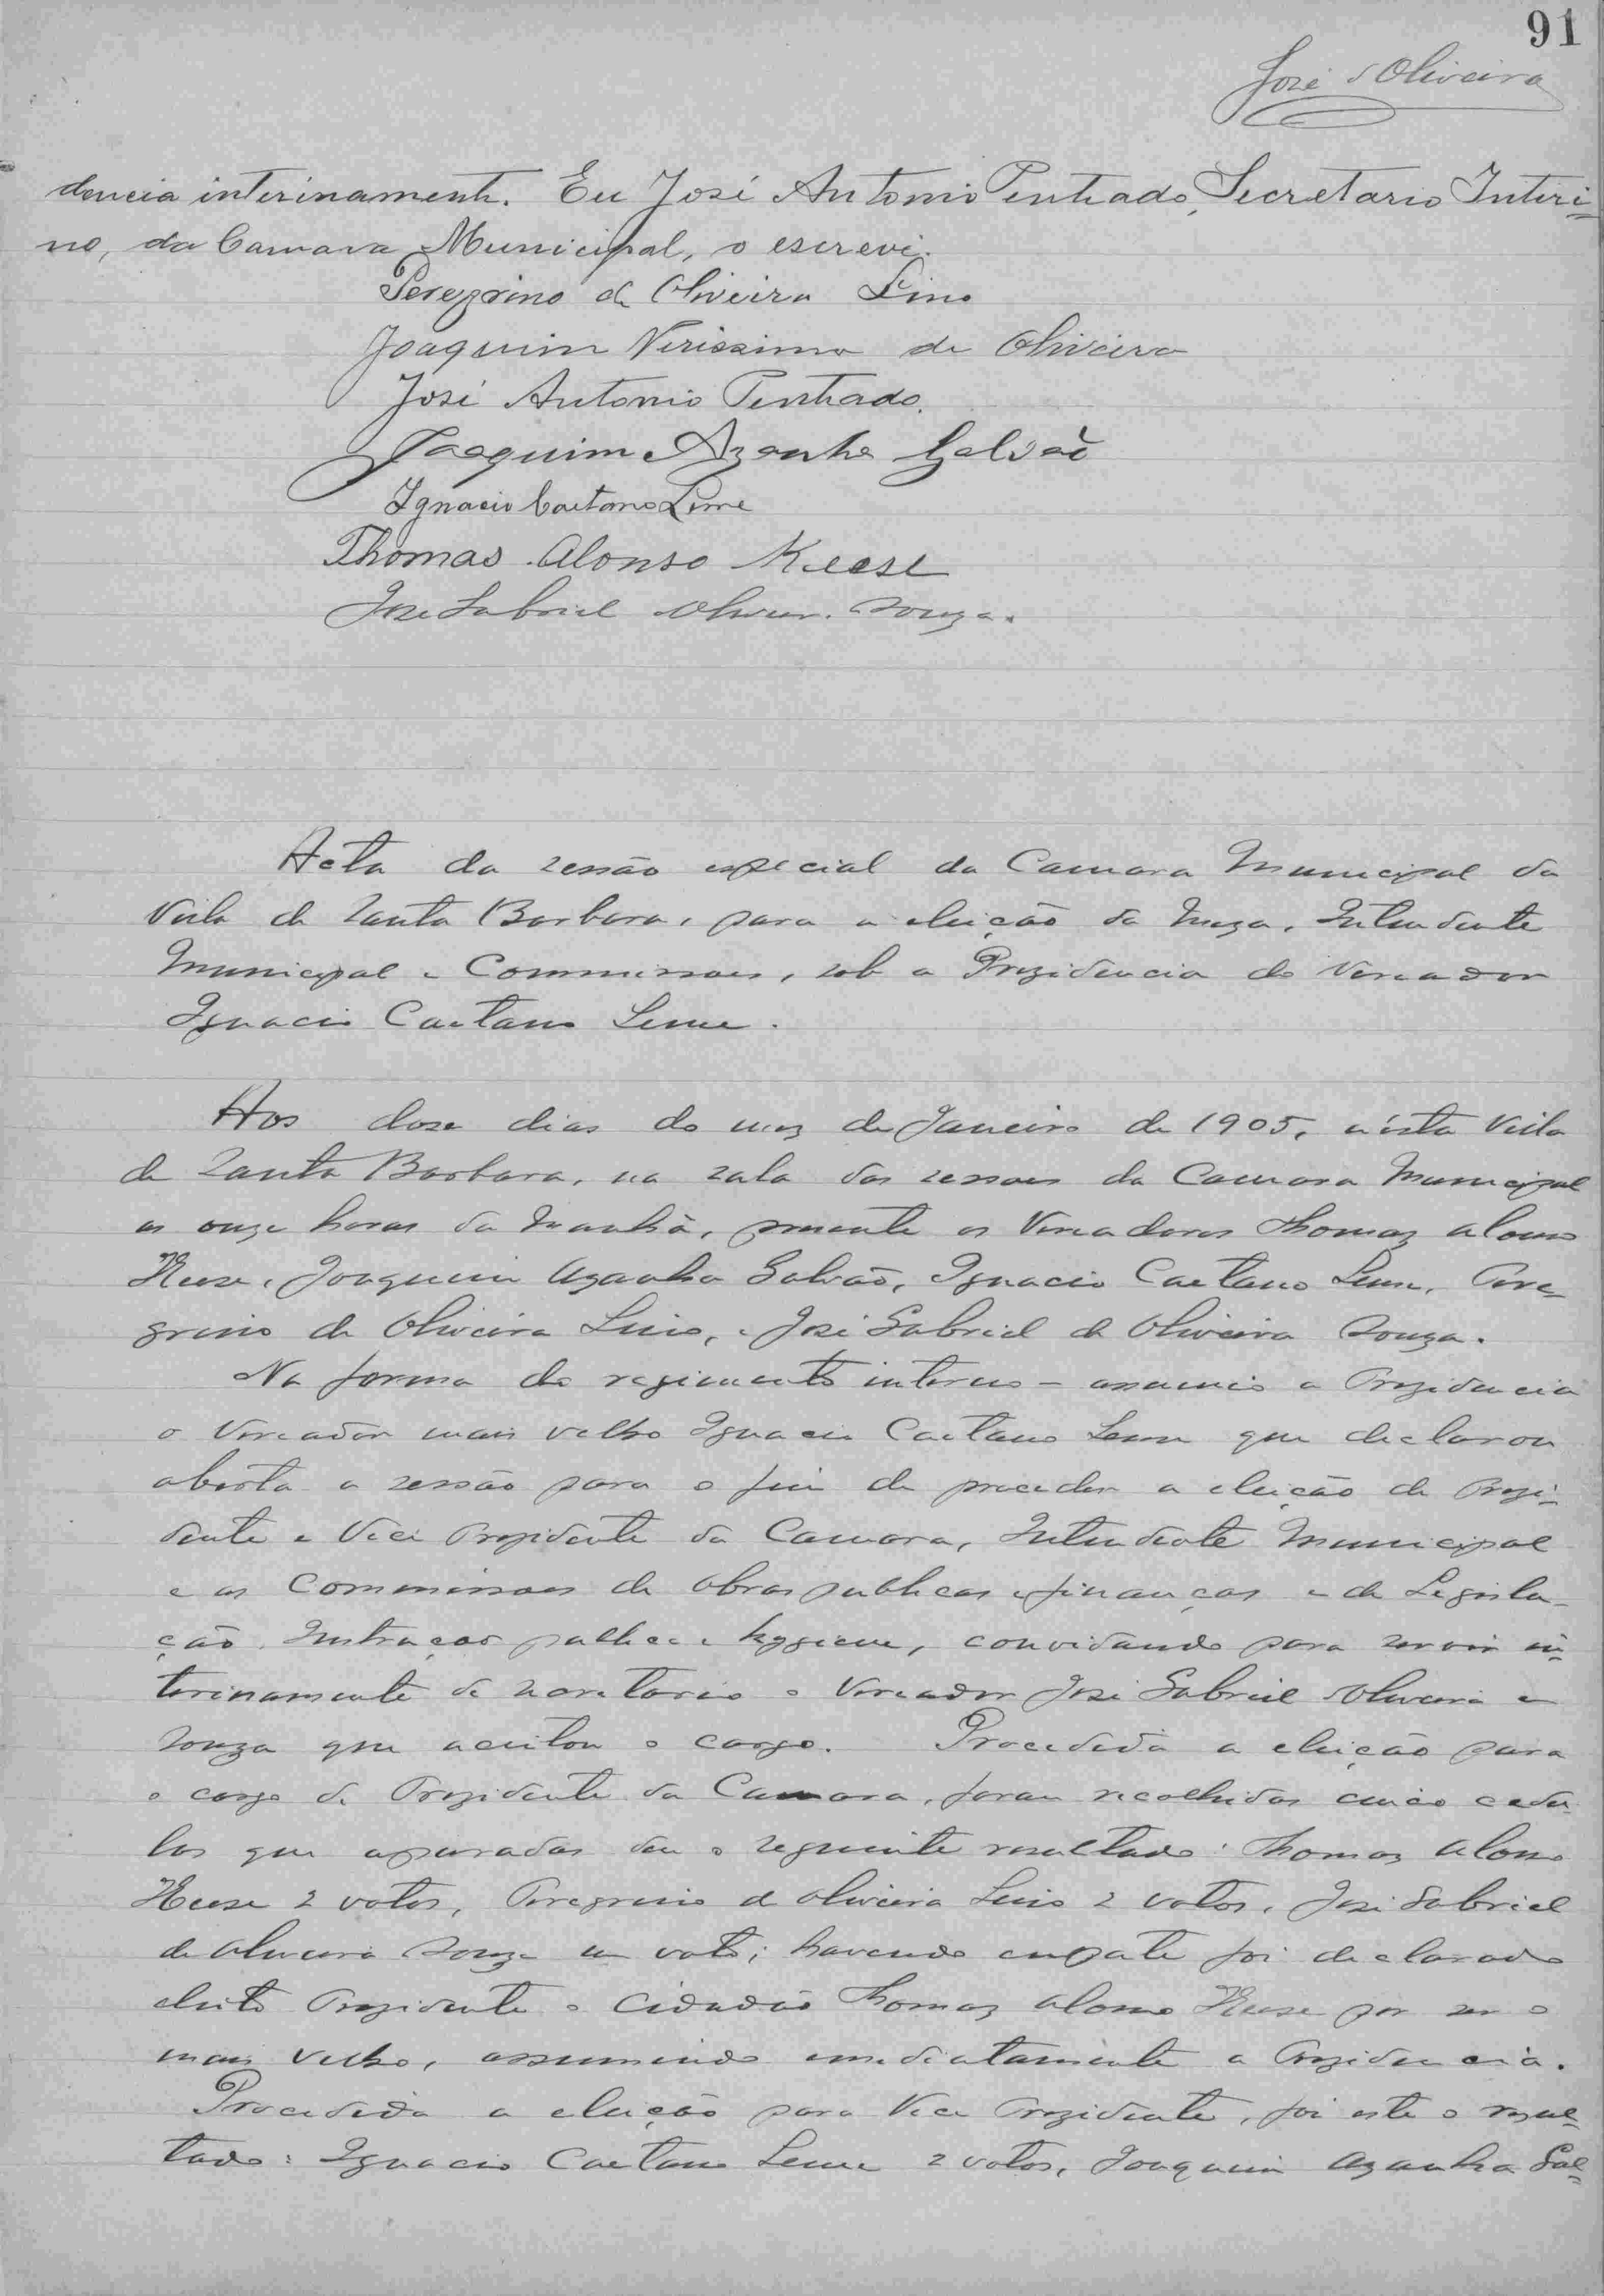 91
José d'Oliveira
dencia interinamente. Eu José Antonio Penteado, Secretario Interi-
no, da Camara Municipal, o escrevi.
Peregrino de Oliveira Lino
Joaquim Verissimo de Oliveira
José Antonio Penteado.
Joaquim Azanha Galvão
Ignacio Caetano Leme
Thomas Alonso Keese
José Gabriel Oliveira Souza.
Acta da sessão especial da Camara Municipal da
Villa de Santa Barbara, para a eleição da Meza, Intendente
Municipal e Commissoes, sob a Prezidencia do Vereador
Ignacio Caetano Leme.
Aos dose dias do mez de Janeiro de 1905, n'esta Villa
de Santa Barbara, na sala das sessoes da Camara Municipal
as onze horas da manhã, presente os Vereadores Thomaz Alonso
Keese, Joaquim Azanha Galvão, Ignacio Caetano Leme, Pere-
grino de Oliveira Lino, e José Gabriel de Oliveira Souza.
Na forma do regimento interno - assumio a Prezidencia
o Vereador mais velho Ignacio Caetano Leme que declarou
aberta a sessão para o fim de proceder a eleição de Prezi-
dente e Vice Prezidente da Camara, Intendente Municipal
e as Commissoes de obras publicas e finanças e de Legisla-
ção, Instrucção publica e hygiene, convidando para servir in-
terinamente de secretario o Vereador José Gabriel d'Oliveira e
Souza que aceitou o cargo. Procedida a eleição para
o cargo de Prezidente da Camara, foram recolhidas cinco cedu
las que apuradas deu o seguinte resultado: Thomaz Alonso
Keese 2 votos, Peregrino de Oliveira Lino 2 votos, José Gabriel
de Oliveira Souza um voto; havendo empate foi declarado
eleito Prezidente o Cidadão Thomaz Alonso Keese por ser o
mais velho, assumindo immediatamente a Prezidencia.
Procedida a eleição para Vice Prezidente, foi este o resul-
tado: Ignacio Caetano Leme 2 votos, Joaquim Azanha Gal-